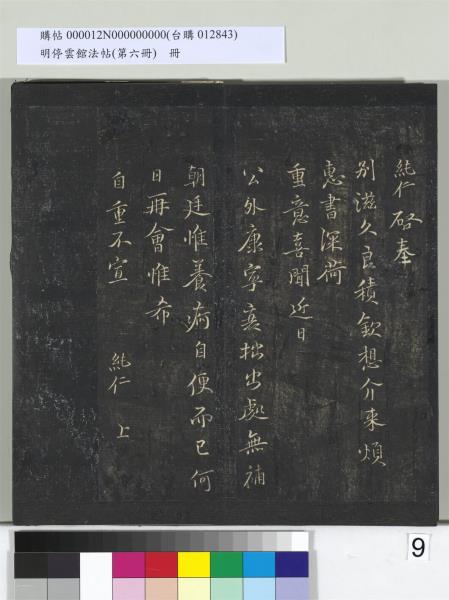 購帖 000012N000000000(台購 012843)
明停雲館法帖(第六冊) 冊
純仁啓奉
別滋久良積欽想介來煩
惠書深荷
重意喜聞近日
公外康寧衰拙出處無補
朝廷惟養痾自便而已何
日再會惟希
自重不宣 純仁 上
9